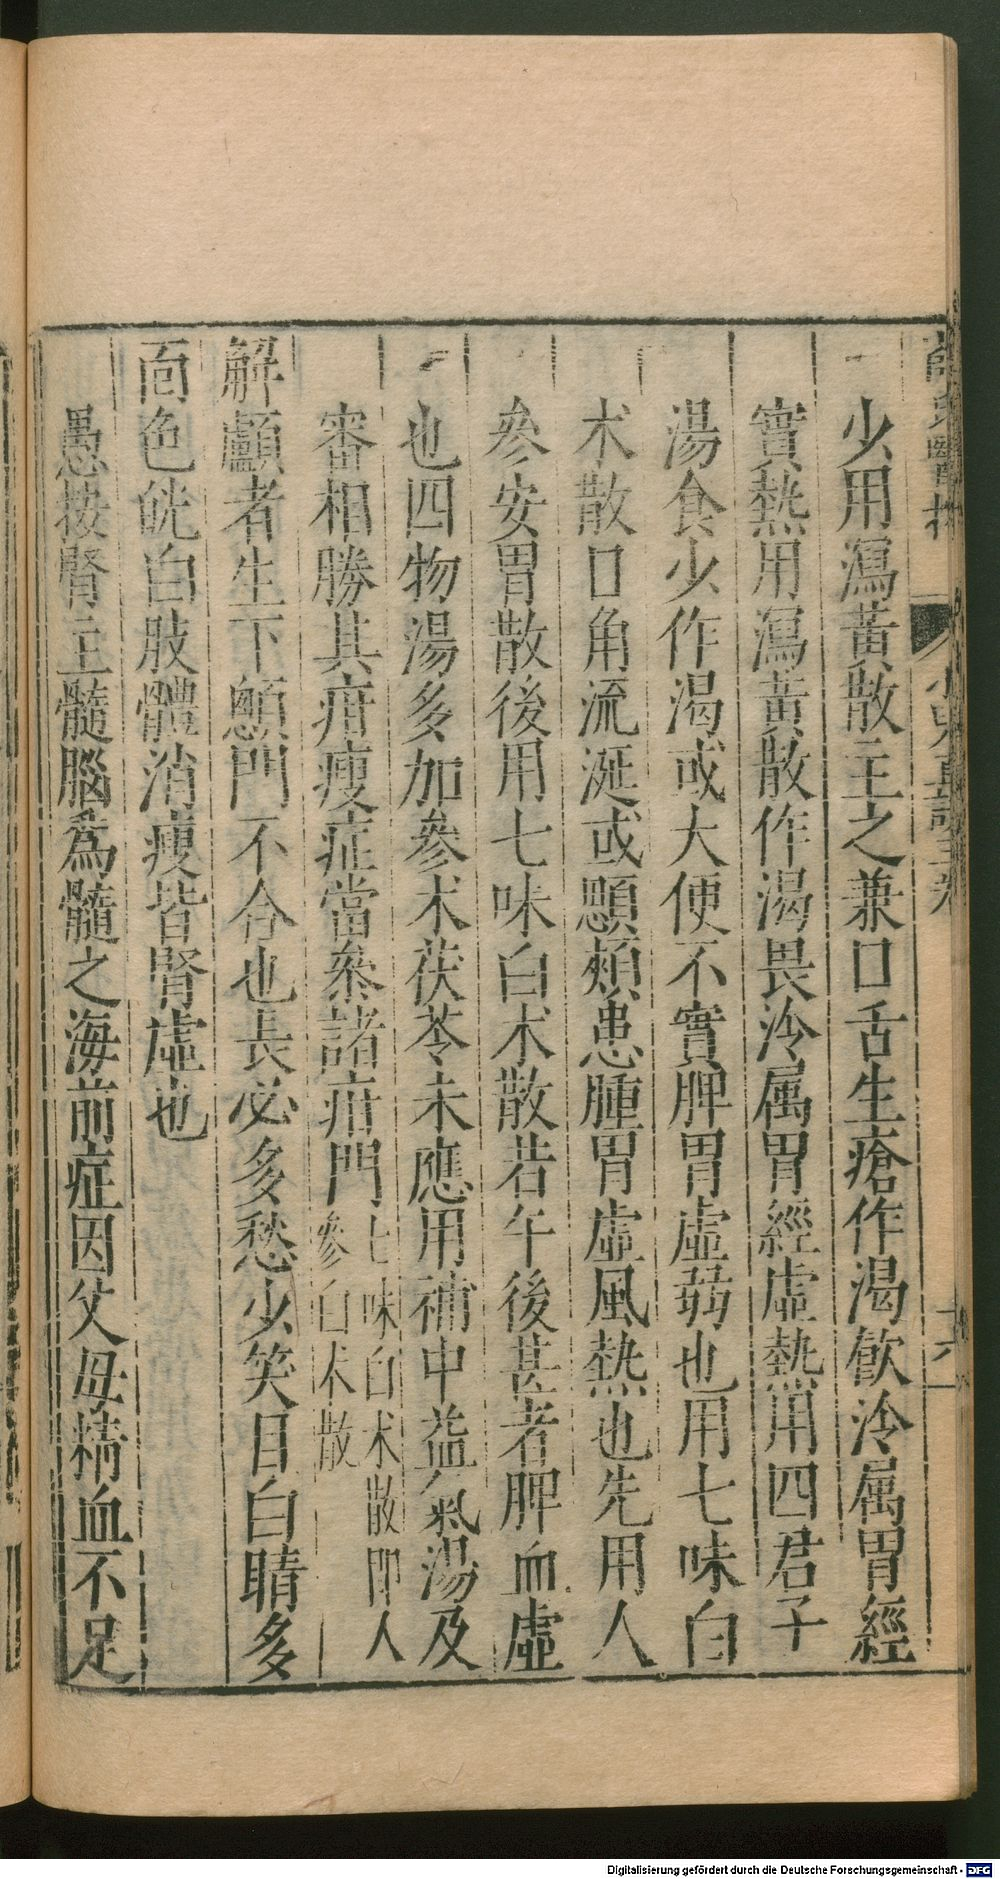 少用瀉黃散主之兼口舌生瘡作渴飲冷属胃經
實熱用瀉黃散作渴畏冷属胃經虛熱用四君子
湯食少作渴或大便不實脾胃虛弱也用七味白
术散口角流涎或顋頰患腫胃虛風熱也先用人
參安胃散後用七味白术散若午後甚者脾血虛
也四物湯多加參术茯苓未應用補中益氣湯及
審相勝其疳瘦症當叅諸疳門
七味白术散即人
參白术散
解顱者生下顖門不合也長必多愁少笑目白睛多
面色㿠白肢體消瘦皆腎虛也
愚按腎主髓腦為髓之海前症因父母精血不足
Digitalisierung gefördert durch die Deutsche Forschungsgemeinschaft - DFG